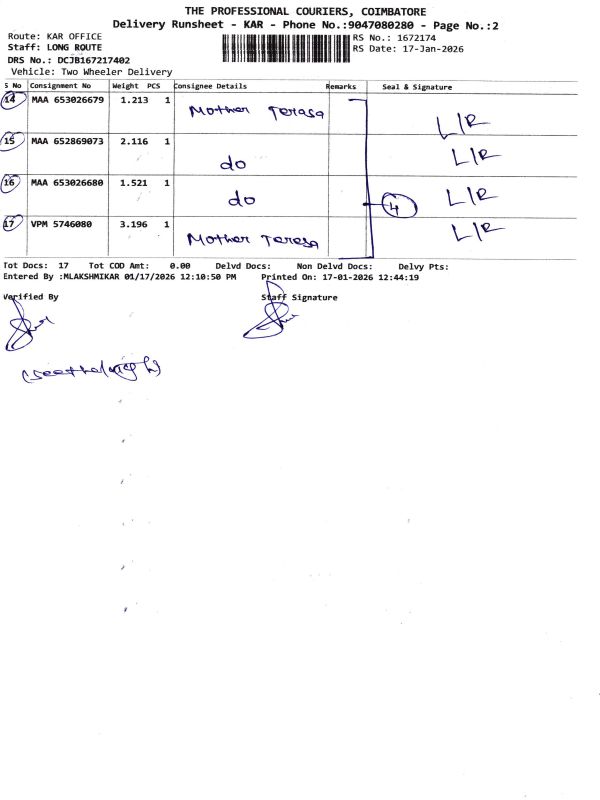 THE PROFESSIONAL COURIERS, COIMBATORE
Delivery Runsheet - KAR - Phone No.:9047080280 - Page No.:2
Route: KAR OFFICE RS No.: 1672174
Staff: LONG ROUTE RS Date: 17-Jan-2026
DRS No.: DCJB167217402
Vehicle: Two Wheeler Delivery
S No Consignment No Weight PCS Consignee Details Remarks Seal & Signature
14 MAA 653026679 1.213 1 Mother Terasa L/R
15 MAA 652869073 2.116 1 do L/R
16 MAA 653026680 1.521 1 do 4 L/R
17 VPM 5746080 3.196 1 Mother Teresa L/R
Tot Docs: 17 Tot COD Amt: 0.00 Delvd Docs: Non Delvd Docs: Delvy Pts:
Entered By :MLAKSHMIKAR 01/17/2026 12:10:50 PM Printed On: 17-01-2026 12:44:19
Verified By Staff Signature